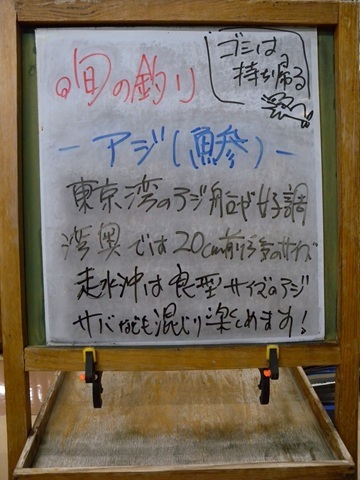 旬の釣り
ゴミは
持ち帰る
-アジ(鯵)-
東京湾のアジ船が好調
湾奥では20cm前後のサイズ
走水沖は良型サイズのアジ
サバなども混じり楽しめます!